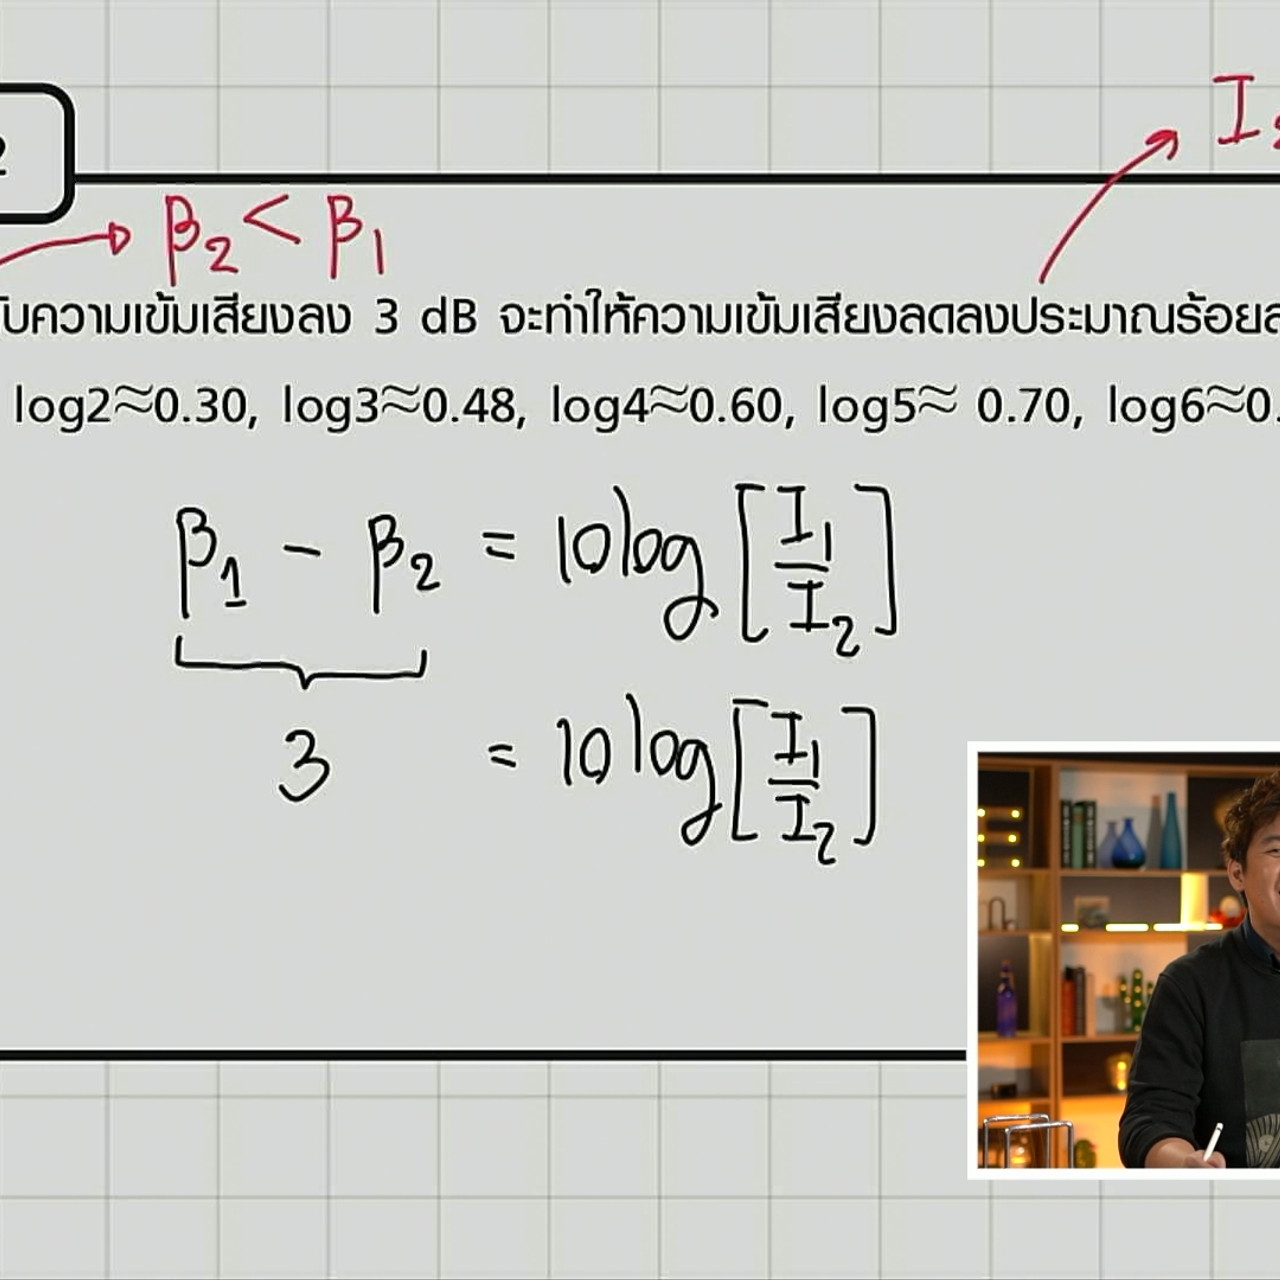 I
2
β₂ < β₁
ับความเข้มเสียงลง 3 dB จะทำให้ความเข้มเสียงลดลงประมาณร้อยล
log2≈0.30, log3≈0.48, log4≈0.60, log5≈ 0.70, log6≈0.
β₁ - β₂ = 10log [I₁/I₂]
3 = 10log [I₁/I₂]